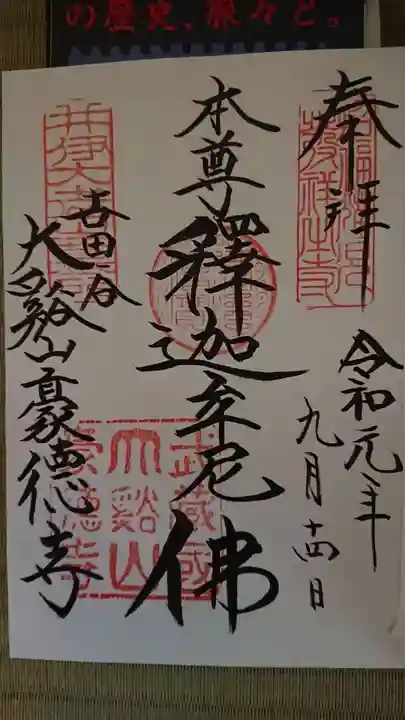 の歴史、脈々と。
奉拝
令和元年
九月十四日
本尊
釋迦牟尼佛
世田谷
大谿山豪徳寺
武藏國
大谿山
豪德寺